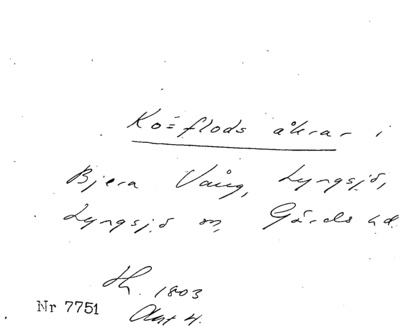 Ko=flods åkrar i
Bjera Vång, Lyngsjö,
Lyngsjö sn, Gärds hd.
Sh. 1803
Akt 4.
Nr 7751